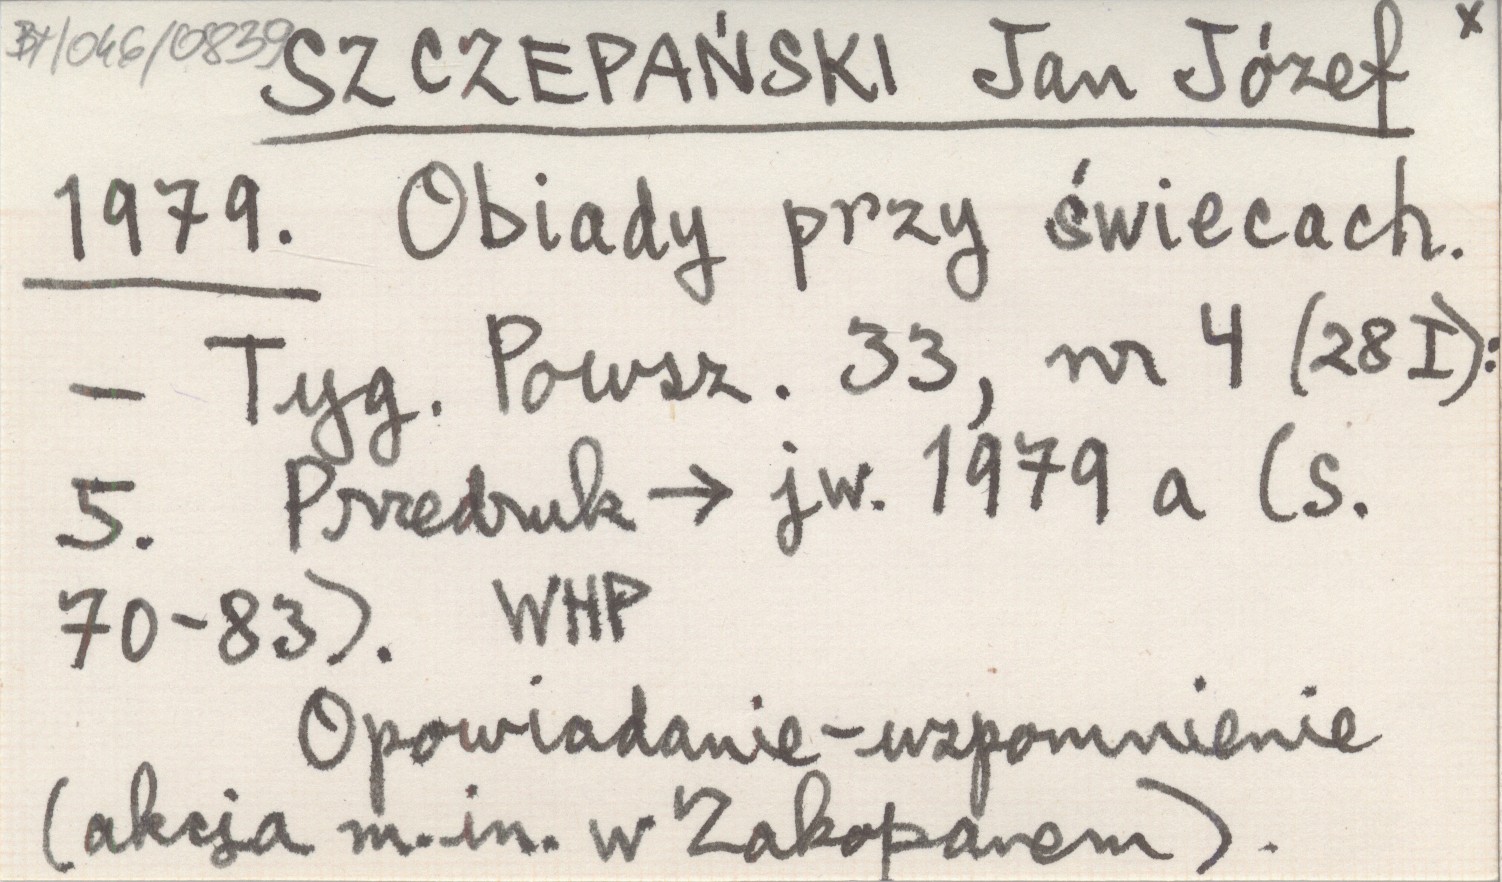 BT/046/0839
SZCZEPAŃSKI Jan Józef x
1979. Obiady przy świecach.
– Tyg. Powsz. 33, nr 4 (28 I):
5. Przedruk → jw. 1979 a (s.
70-83). WHP
Opowiadanie-wspomnienie
(akcja m.in. w Zakopanem).